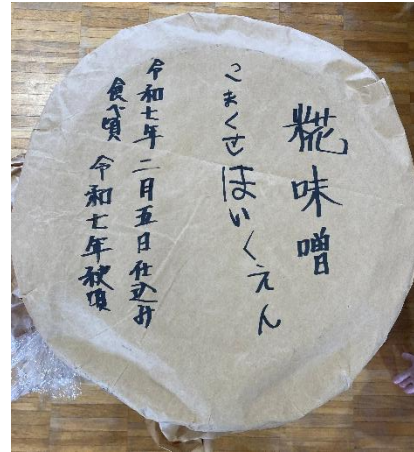 糀味噌
こまくさほいくえん
令和七年 二月五日仕込み
食べ頃 令和七年秋頃